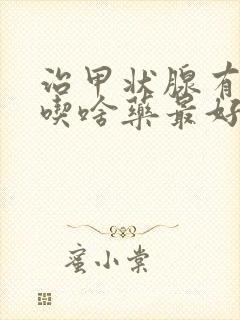 治甲状腺有
喫啥药最好
蜜小棠